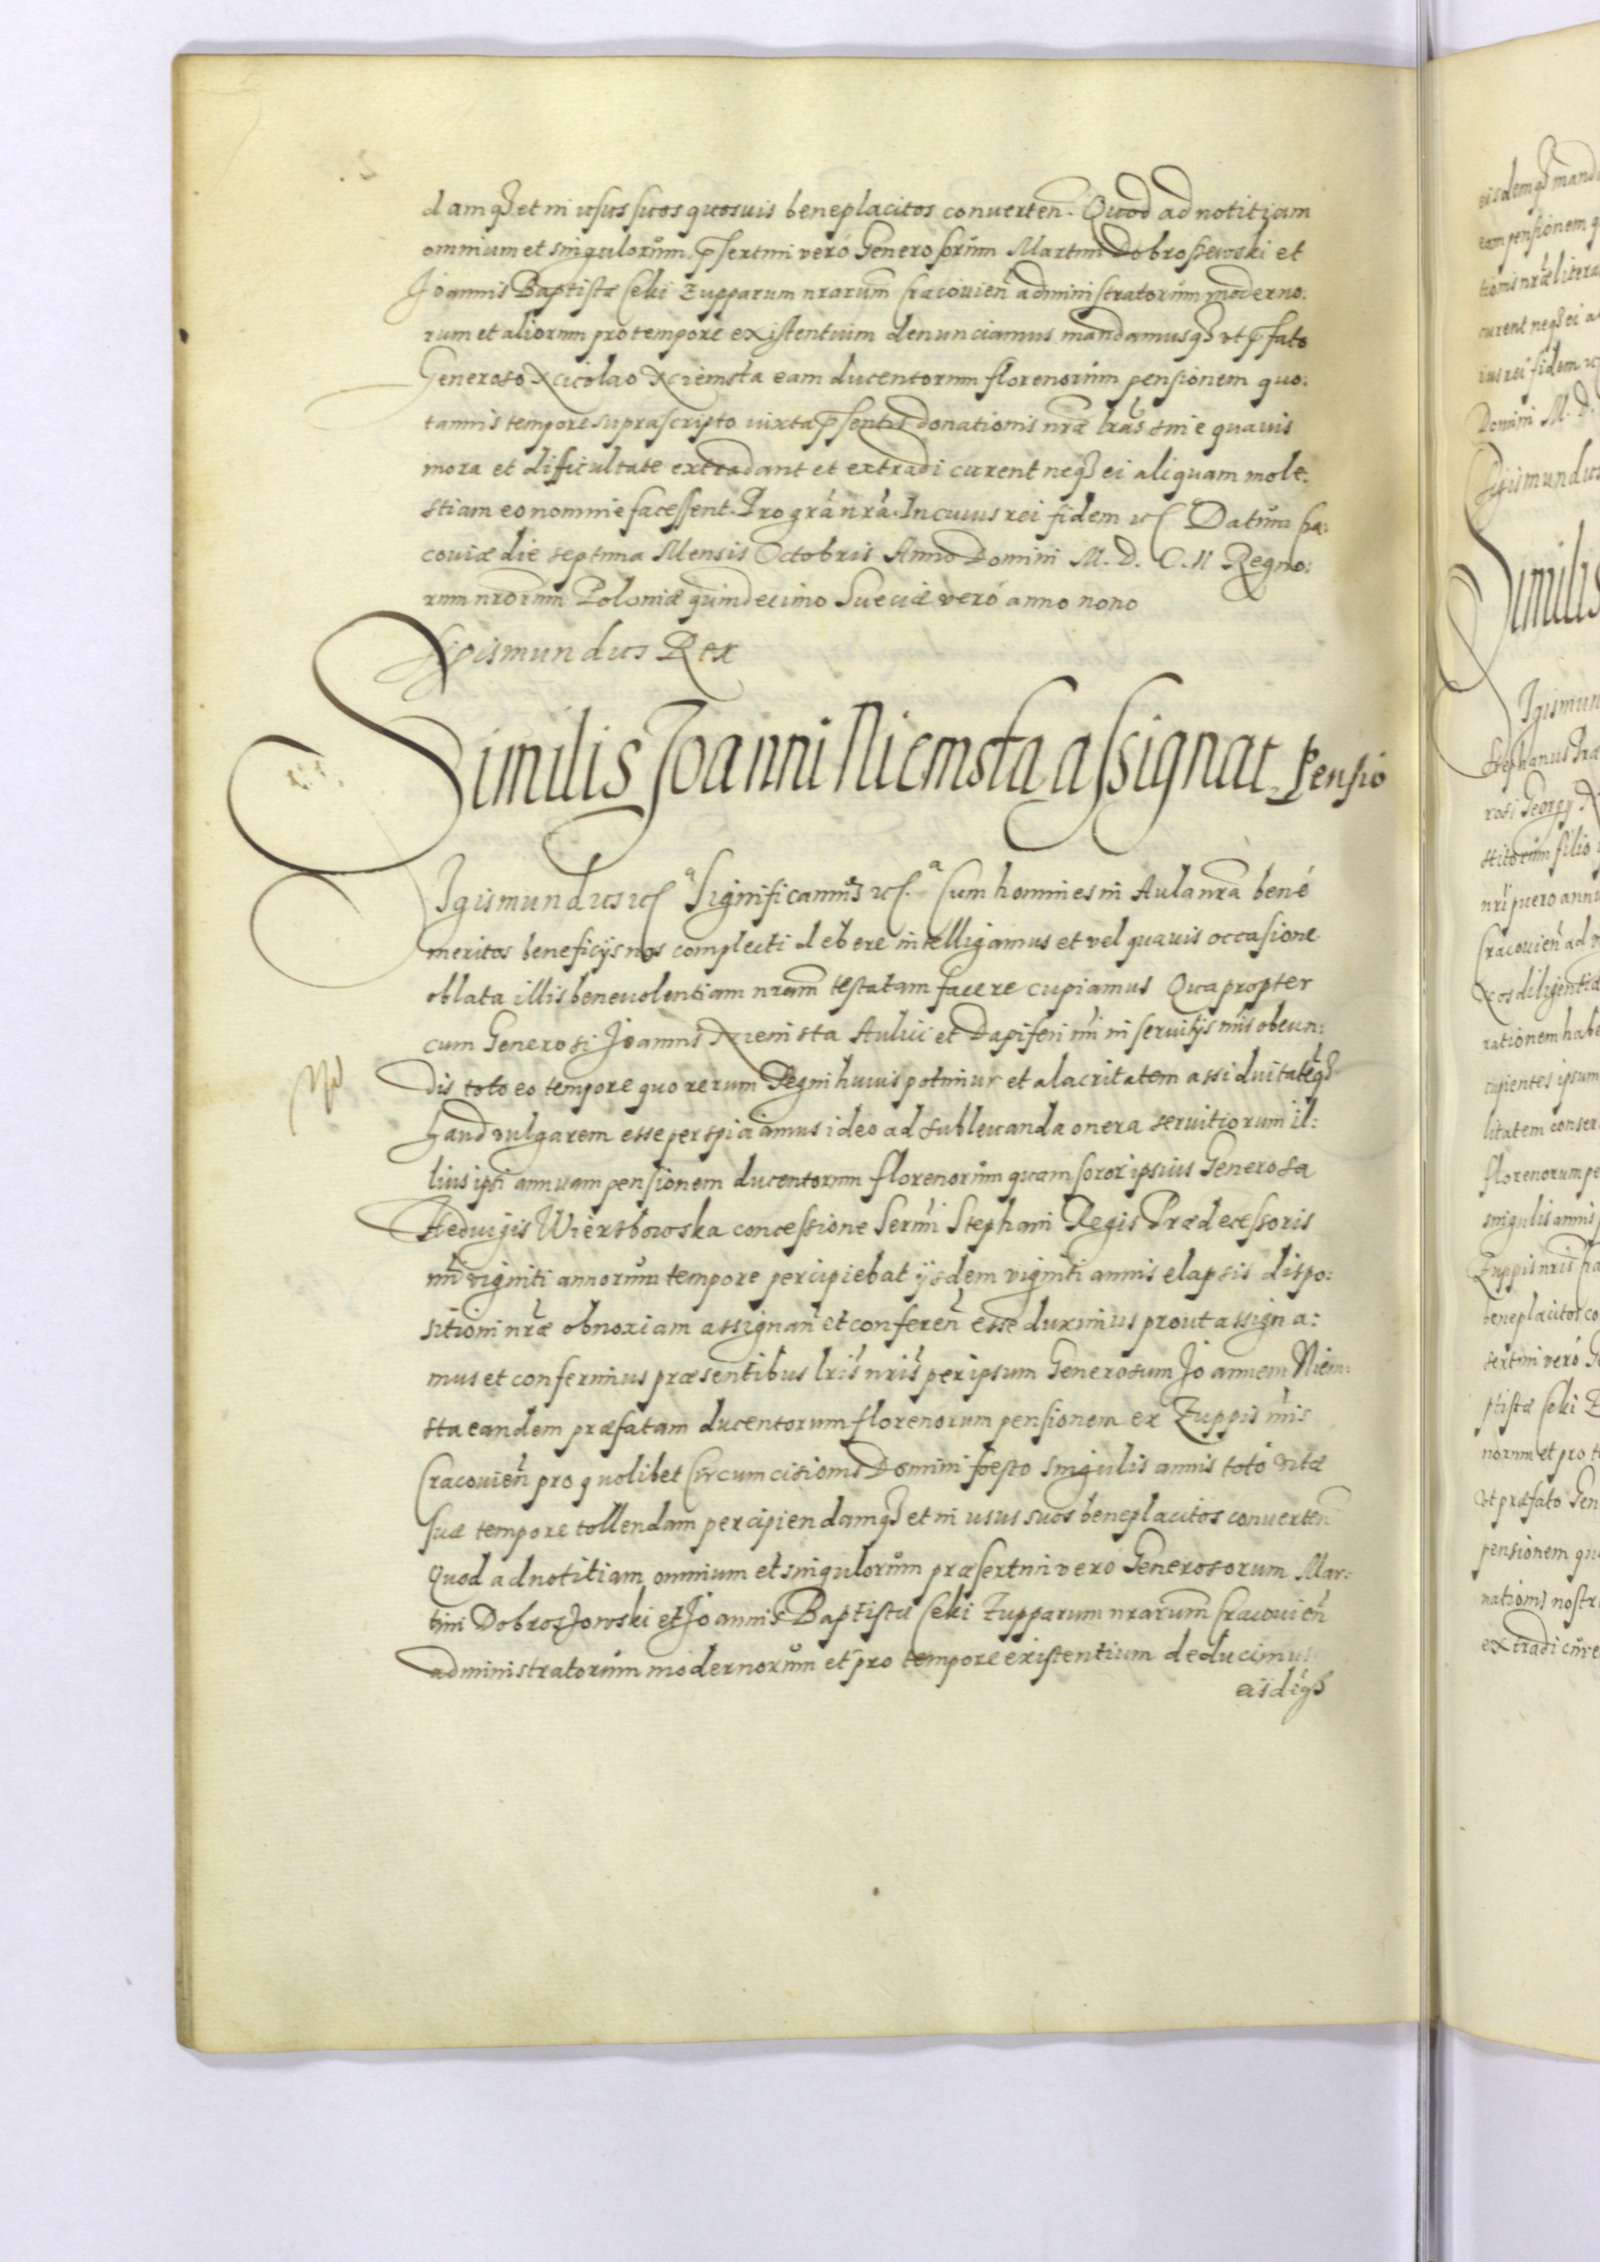 damq₃ et in usus suos quosuis beneplacitos conuerten̄. Quod ad notitiam
omnium et singulorum p̄sertim verò Generosorum Martini Dobroszewski et
Joannis Baptistæ Ceki Zupparum nrārum Cracouien̄ administratorum moderno:
rum et aliorum pro tempore existentium denunciamus mandamusq₃ vt p̄fato
Generoso Nicolao Niemsta eam ducentorum florenorum pensionem quo:
tannis tempore suprascripto iuxta p̄sentis donationis nrāe lrās sine quauis
mora et difficultate extradant et extradi curent neq₃ ei aliquam mole:
stiam eo nomine facessent. Pro grā nrā. In cuius rei fidem etc Datum Cra:
couiæ die septima Mensis Octobris Anno Domini M. D. C. II Regno:
rum nrōrum Poloniæ quindecimo Sueciæ verò anno nono
Sigismundus Rex
Similis Joanni Niemsta assignat. Pensio
Sigismundus etc Significamus etc. Cum homines in Aula nrā bene
meritos beneficijs nos complecti debere intelligamus et vel quauis occasione
oblata illis beneuolentiam nrām testatam facere cupiamus Quapropter
cum Generosi Joannis Niemsta Aulici et Dapiferi nrī in seruitijs nrīs obeun:
dis toto eo tempore quo rerum Regni huius potimur et alacritatem assiduitatēq₃
haud vulgarem esse perspiciamus ideo ad subleuanda onera seruitiorum il:
lius ipsi annuam pensionem ducentorum florenorum quam soror ipsius Generosa
Heduigis Wierzbowska concessione Sermī Stephani Regis Prædecessoris
nrī viginti annorum tempore percipiebat ijsdem viginti annis elapsis dispo:
sitioni nrāe obnoxiam assignan̄ et conferen̄ esse duximus prout assigna:
mus et conferimus præsentibus lrīs nrīs per ipsum Generosum Joannem Niem:
sta eandem præfatam ducentorum florenorum pensionem ex Zuppis nrīs
Cracouien̄ pro quolibet Circumcisionis Domini foesto singulis annis toto vitæ
suæ tempore tollendam percipiendamq₃ et in usus suos beneplacitos conuerten̄
Quod ad notitiam omnium et singulorum præsertim verò Generosorum Mar:
tini Dobroszowski et Joannis Baptistæ Ceki Zupparum nrārum Cracouien̄
administratorum modernorum et pro tempore existentium deducimus
eisdēq₃